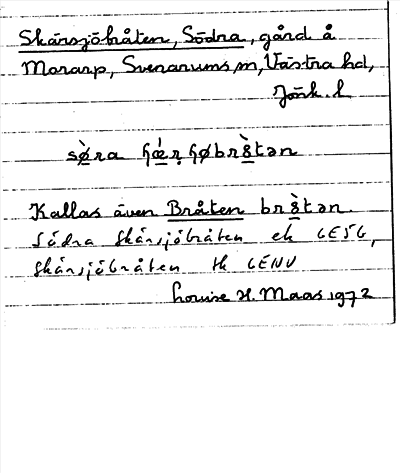 Skärsjöbråten, Södra, gård å
Morarp, Svenarums sn, Västra hd,
Jönk. l
sø̀ra ɧǽr̥ɧøbrå̀tən
Kallas även Bråten brå̀tən.
Södra Skärsjöbråten ek GESG,
Skärsjöbråten tk GENV
Louise H. Maas 1972